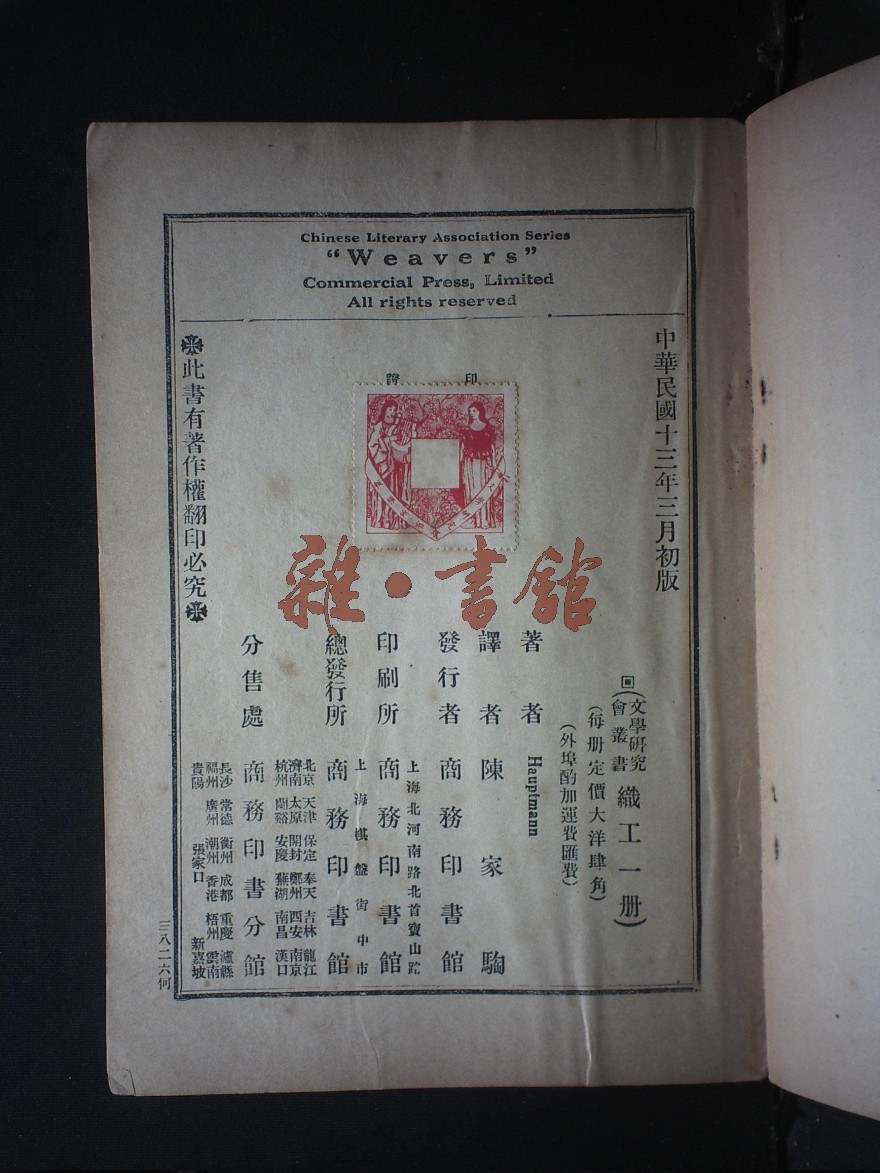 Chinese Literary Association Series
"Weavers"
Commercial Press, Limited
All rights reserved
中華民國十三年三月初版
回(文學硏究會叢書織工一册)
(每册定價大洋肆角)
(外埠酌加運費匯費)
著者 Hauptmann
譯者 陳家騊
發行者 商務印書館
上海北河南路北首寶山路
印刷所 商務印書館
上海棋盤街中市
總發行所 商務印書館
北京 天津 保定 奉天 吉林 龍江
濟南 太原 開封 鄭州 西安 南京
杭州 蘭谿 安慶 蕪湖 南昌 漢口
分售處 商務印書分館
長沙 常德 衡州 成都 重慶 瀘縣
福州 廣州 潮州 香港 梧州 雲南
貴陽 張家口 新嘉坡
印證
此書有著作權翻印必究
三八二六何
雜·書館